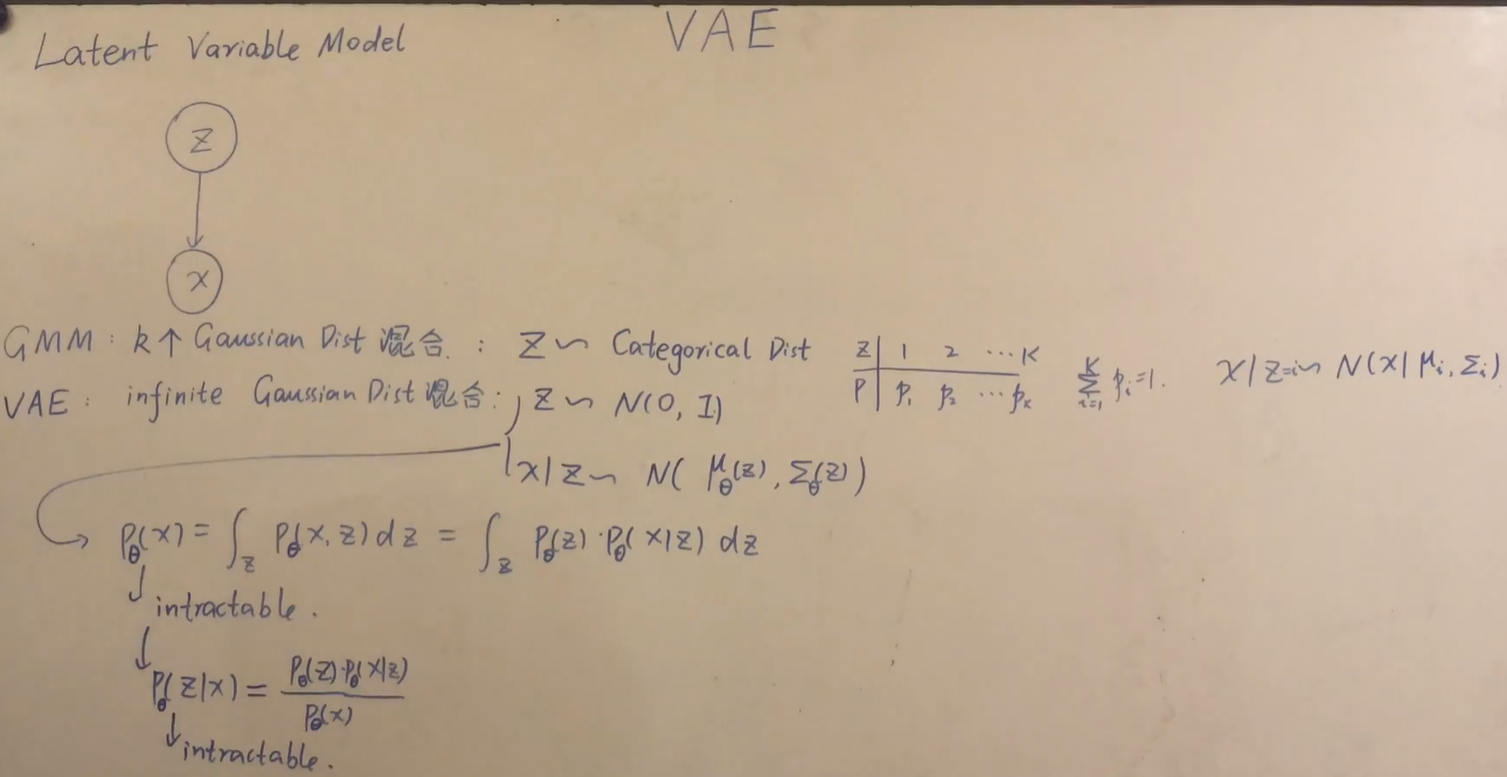 Latent Variable Model
VAE
z
x
GMM : k个 Gaussian Dist 混合. : z ~ Categorical Dist z | 1 2 ⋯ K
P | p₁ p₂ ⋯ pₖ
∑ᵢ₌₁ᴷ pᵢ=1. x|z=i ~ N(x|μᵢ, Σᵢ)
VAE : infinite Gaussian Dist 混合: , z ~ N(0, I)
x|z ~ N( μ_θ(z), Σ_θ(z) )
P_θ(x) = ∫_z P_θ(x, z) dz = ∫_z P_θ(z) · P_θ(x|z) dz
intractable.
P_θ(z|x) = P_θ(z)·P_θ(x|z) / P_θ(x)
intractable.